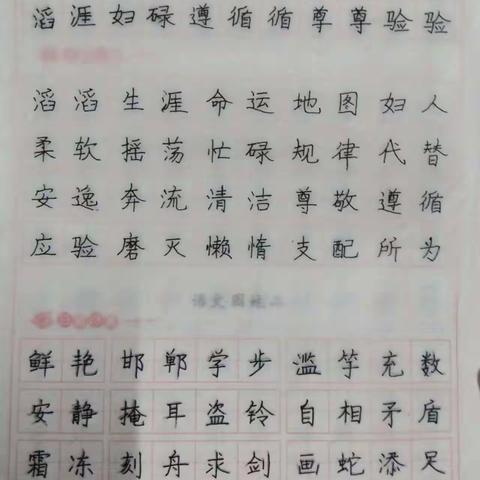 滔涯妇碌遵循循尊尊验验
滔滔 生涯 命运 地图 妇人
柔软 摇荡 忙碌 规律 代替
安逸 奔流 清洁 尊敬 遵循
应验 磨灭 懒惰 支配 所为
语文园地二
鲜艳 邯郸学步 滥竽充数
安静 掩耳盗铃 自相矛盾
霜冻 刻舟求剑 画蛇添足